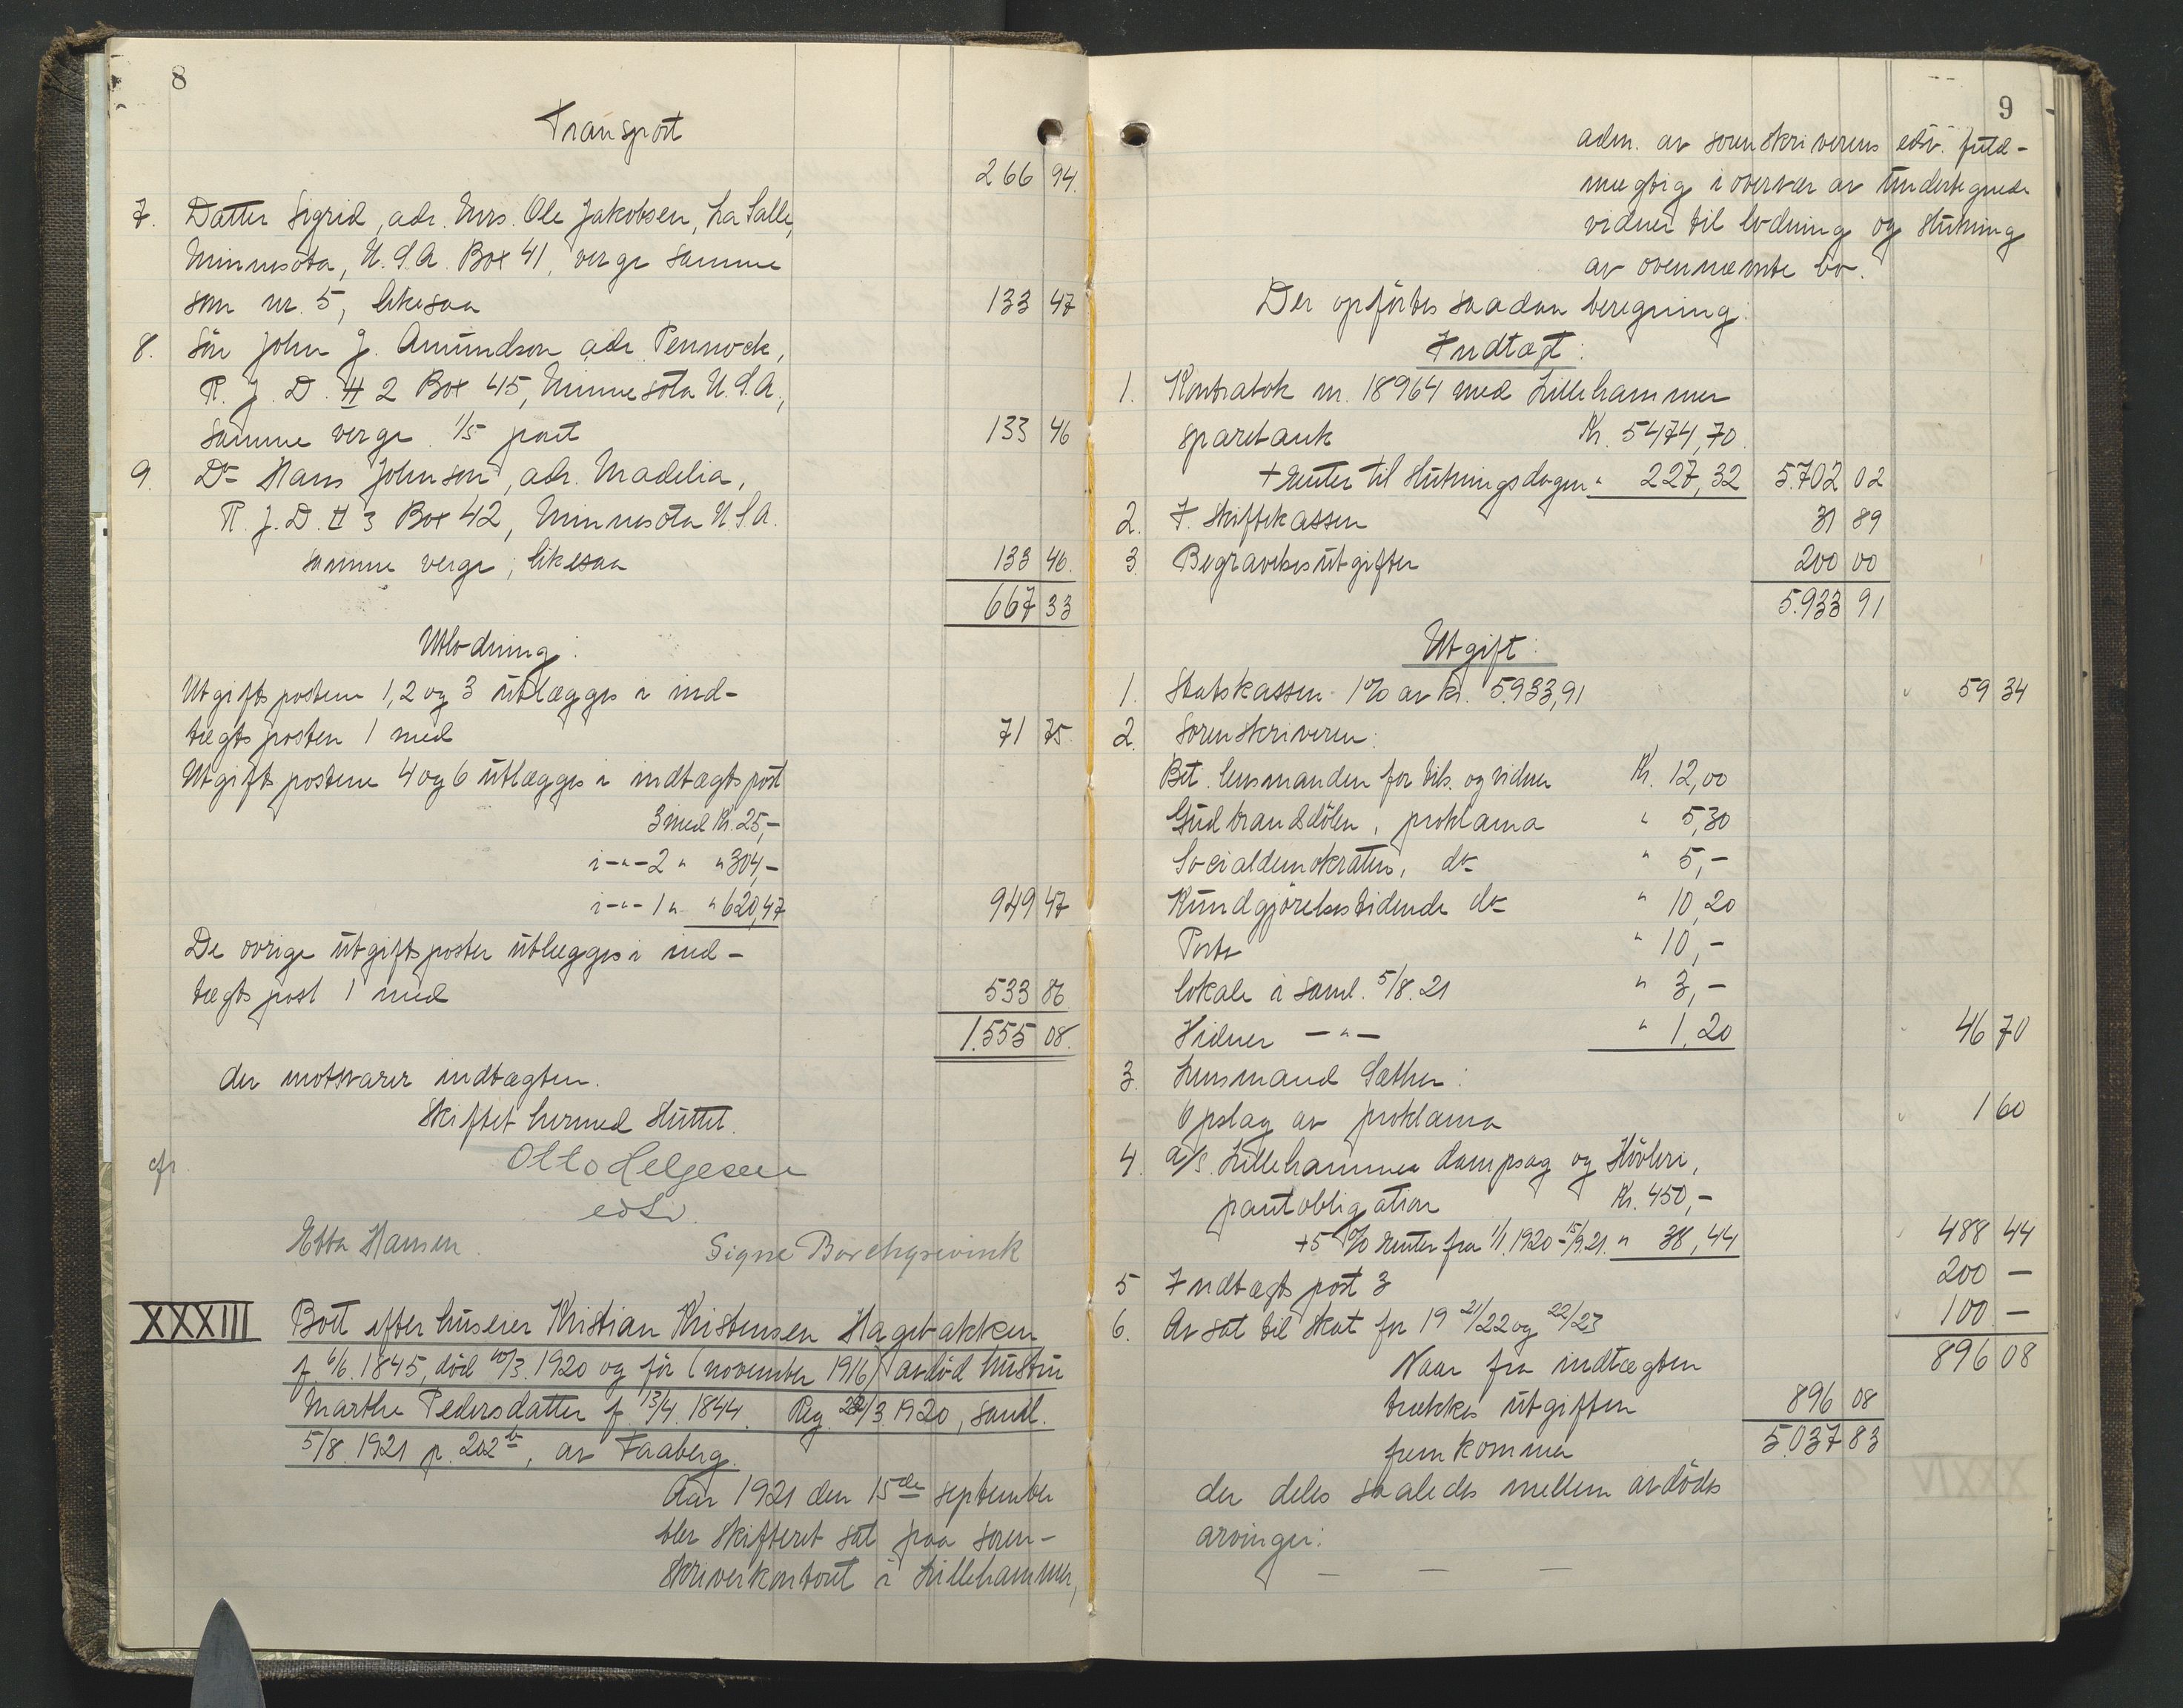 8
Transport
266 94.
7. Datter Sigrid, adr. Mrs. Ole Jakobsen, La Salle,
Minnesota, U.S.A. Box 41, verge samme
som nr. 5, likesaa 133 47
8. Sön John J. Amundson adr. Pennock,
R. J. D. # 2 Box 45, Minnesota U.S.A.,
samme verge. 1/5 part 133 46
9. Do Hans Johnson, adr. Madelia,
R. J. D. # 3 Box 42, Minnesota U.S.A.
samme verge, likesaa 133 46.
667 33
Utlodning:
Utgiftspostene 1, 2 og 3 utlægges i ind-
tægtsposten 1 med 71 75.
Utgiftspostene 4 og 6 utlægges i indtægtspost
3 med Kr. 25,-
i -"- 2 " " 304,-
i -"- 1 " " 620,47 949 47
De øvrige utgiftsposter utlægges i ind-
tægtspost 1 med 533 86
1.555 08.
der motsvarer indtægten.
Skiftet hermed sluttet.
cfr. Otto Helgesen
edsv.
Ebba Hansen. Signe Borchgrevink
XXXIII Boet efter huseier Kristian Kristensen Hagebakken
f. 6/6. 1845, död 10/3. 1920 og för (november 1916) avdöd hustru
Marthe Pedersdatter f. 13/4. 1844. Reg. 22/3. 1920, saml.
5/8. 1921 p. 202 b, av Faaberg.
Aar 1921 den 15de september
blev skifteret sat paa soren-
skriverkontoret i Lillehammer,
9
adm. av sorenskriverens edsv. fuld-
mægtig i overvær av undertegnede
vidner til lodning og slutning
av ovennævnte bo.
Der opförtes saadan beregning:
Indtægt:
1. Kontrabok nr. 18964 med Lillehammer
sparebank Kr. 5474,70.
+ renter til slutningsdagen " 227,32 5.702 02
2. I skiftekassen 31 89
3. Begravelsesutgifter 200 00
5.933 91
Utgift:
1. Statskassen 1% av kr. 5.933,91 59 34
2. Sorenskriveren:
Bet. lensmanden for tils. og vidner Kr. 12,00
Gudbrandsdölen, proklama " 5,30
Socialdemokraten, do " 5,-
Kundgjörelsestidende do " 10,20
Porto " 10,-
Lokale i saml. 5/8. 21 " 3,-
Vidner -"- " 1,20 46 70
3. Lensmand Sæther:
Opslag av proklama 1 60
4. A/S. Lillehammer Dampsag og Hövleri,
pantobligation Kr. 450,-
+ 5 % renter fra 1/1. 1920 - 15/9. 21. " 38,44 488 44
5 Indtægtspost 3 200 -
6. Avsat til skat for 19 21/22 og 22/23 100 -
896 08
Naar fra indtægten
trækkes utgiften 896 08
fremkommer 5.037 83
der deles saaledes mellem avdödes
arvinger:
- - -